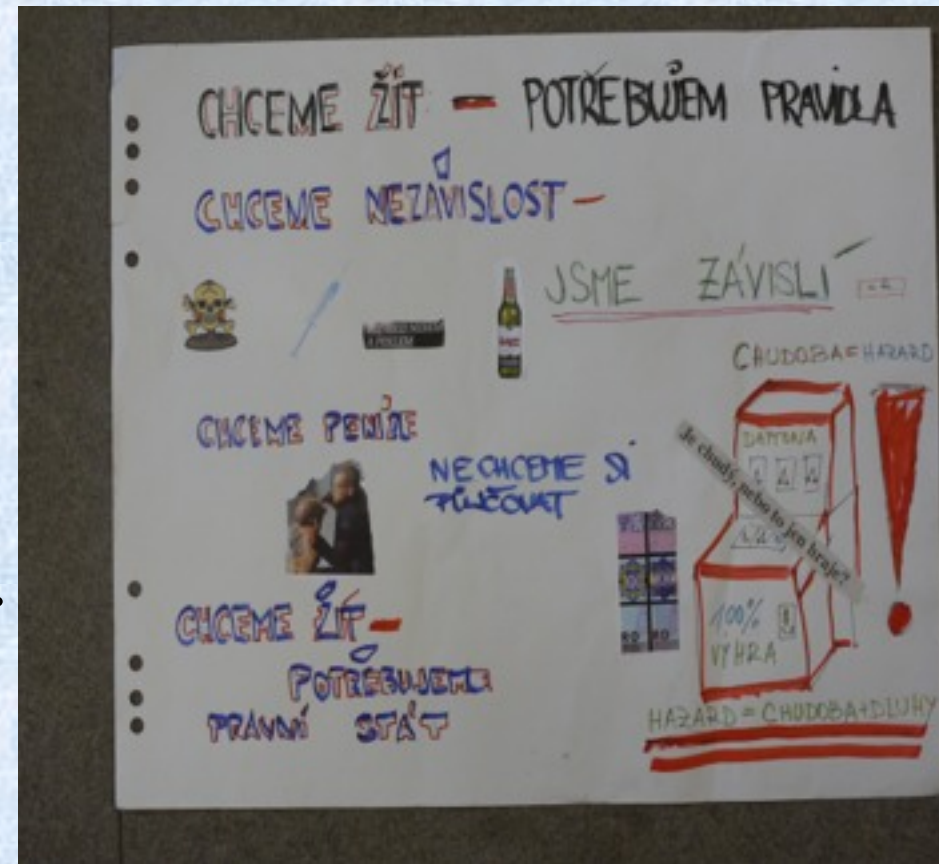 CHCEME ŽÍT – POTŘEBUJEM PRAVIDLA
CHCEME NEZÁVISLOST –
JSME ZÁVISLÍ
CHUDOBA = HAZARD
CHCEME PENÍZE
NECHCEME SI
PŮJČOVAT
Je chudý, nebo to jen hraje?
100%
VÝHRA
CHCEME ŽÍT –
POTŘEBUJEME
PRÁVNÍ STÁT
HAZARD = CHUDOBA + DLUHY